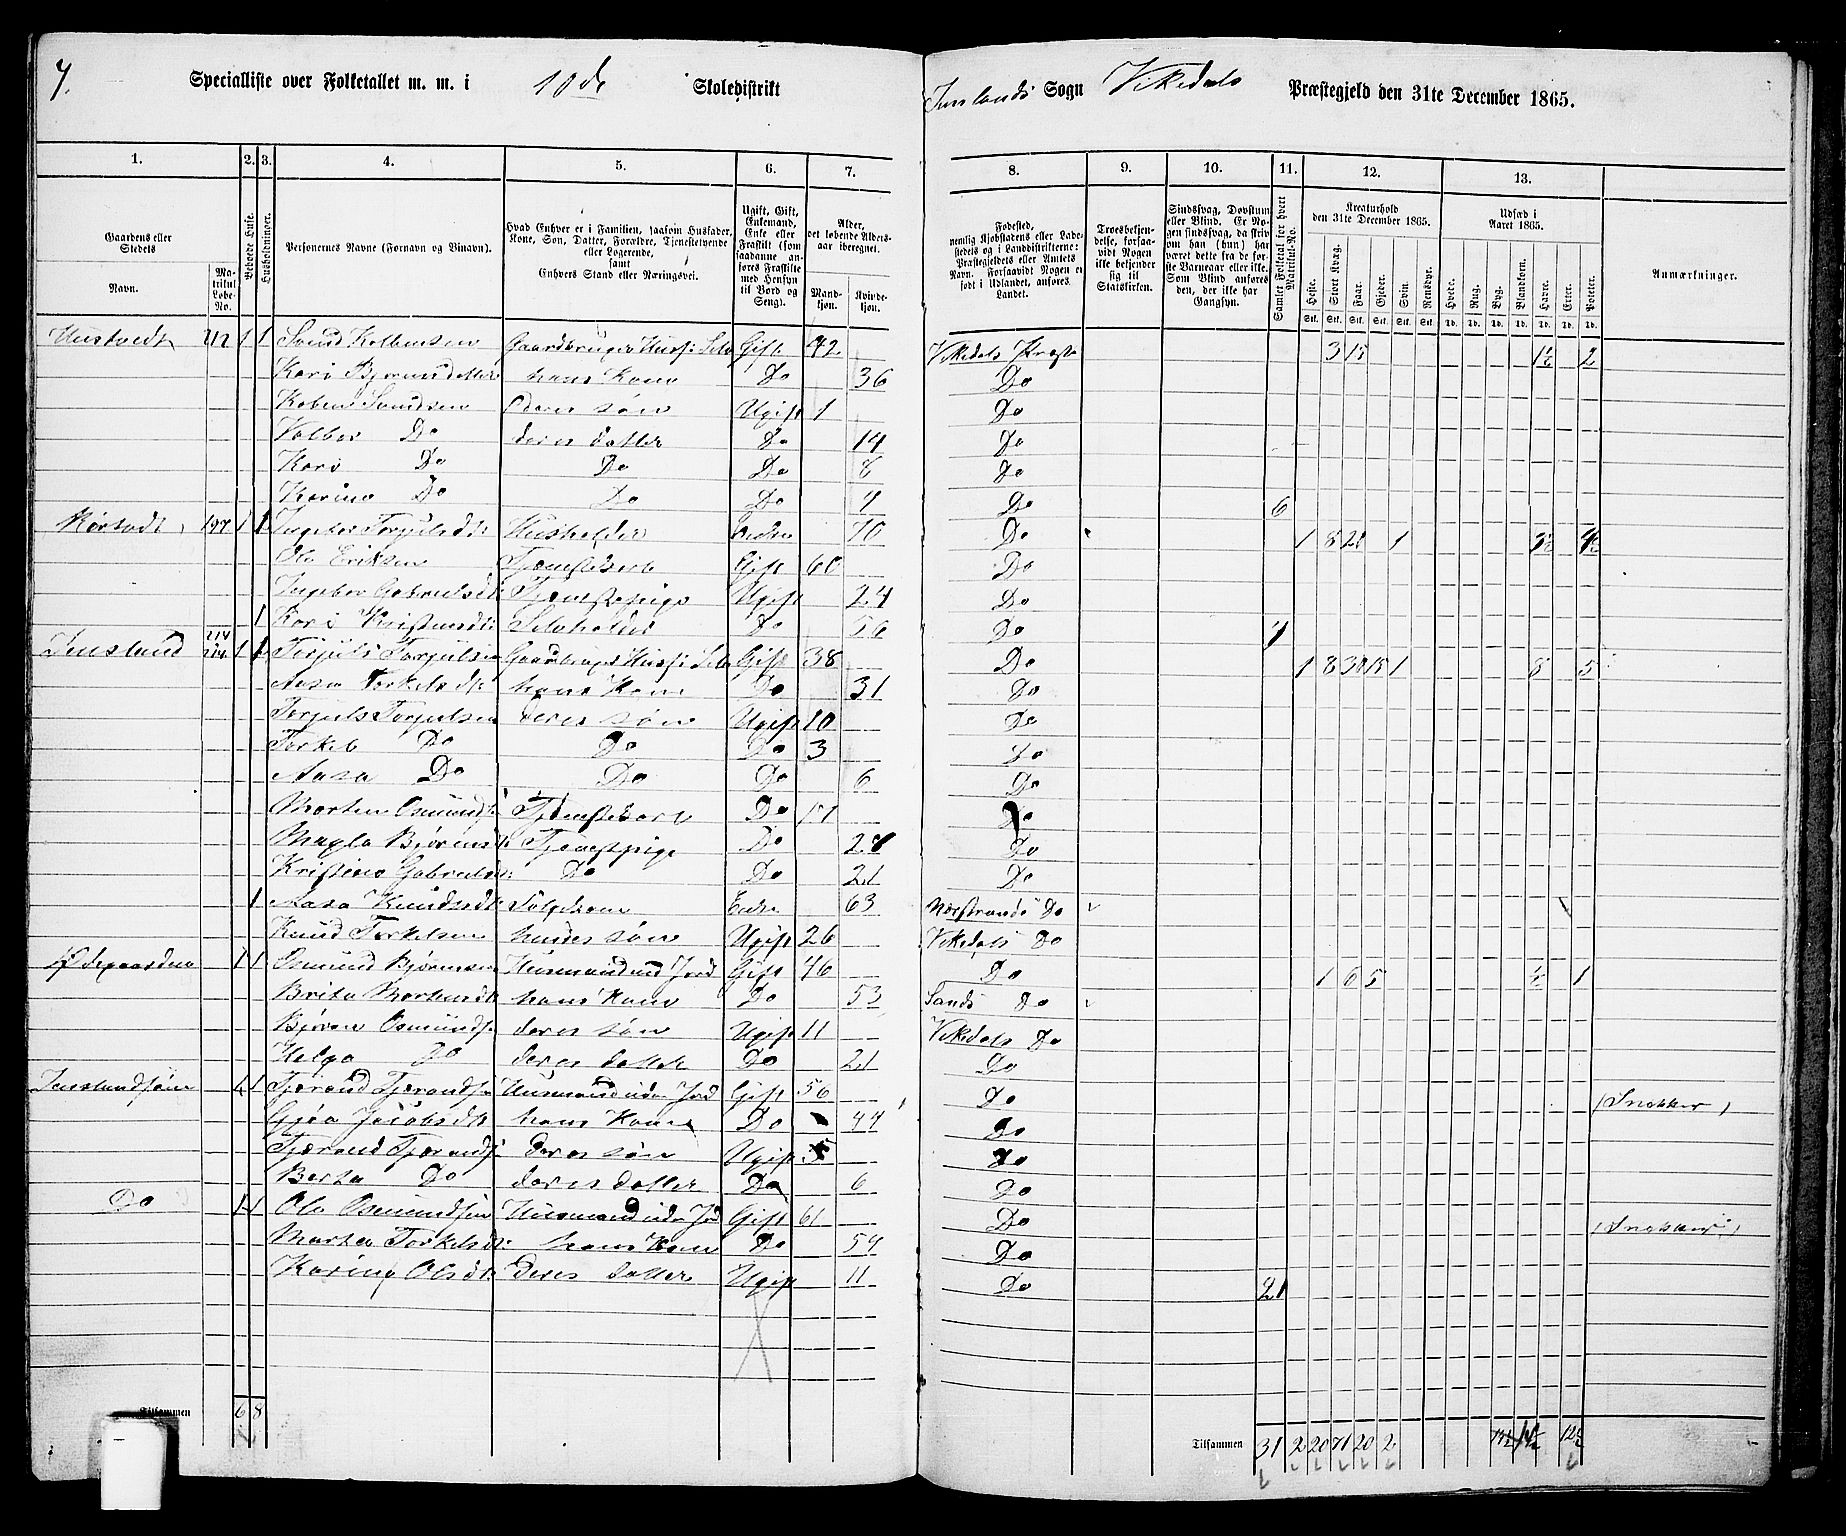 7.
Specialliste over Folketallet m. m. i 10de Skoledistrikt
Sogn Vikedals Præstegjeld den 31te December 1865.
1. 2. 3. 4. 5. 6. 7. 8. 9. 10. 11. 12. 13.
Gaardens eller Stedets
Navn.
Matrikul Løbe-No.
Beboede Huse.
Husholdninger.
Personernes Navne (Fornavn og Vinavn).
Hvad Enhver er i Familien, (saasom Husfader, Kone, Søn, Datter, Forældre, Tjenestetyende eller Logerende, samt Enhvers Stand eller Næringsvei.
Ugift, Gift, Enkemand, Enke eller Fraskilt (som saadanne anføres Fraskilte med Hensyn til Bord og Seng).
Alder, det løbende Alders-aar iberegnet.
Mandkjøn. Kvindekjøn.
Fødested, nemlig Kjøbstadens eller Ladestedets og i Landdistrikterne: Præstegjeldets eller Amtets Navn. Forsaavidt Nogen er født i Udlandet, anføres Landet.
Troesbekjendelse, forsaavidt Nogen ikke bekjender sig til Statskirken.
Sindssvag, Døvstum eller Blind. Er Nogen sindssvag, da skriv om han (hun) har været dette fra de første Barneaar eller ikke. Som Blind anføres den, der ikke har Gangsyn.
Samlet Folketal for hvert Matrikul-No.
Kreaturhold den 31te December 1865.
Heste. Stort Kvæg. Faar. Gjeder. Svin. Rensdyr.
Udsæd i Aaret 1865.
Hvede. Rug. Byg. Blandkorn. Havre. Erter. Poteter.
Anmærkninger.
Hustvedt 212 1 1 Svend Kolbensen Gaardbruger Husf: Selv Gift 42 Vikedals Præst 3 15 1½ 2
Kari hans Kone Do 36 Do
Koben Svendsen deres søn Ugift 1 Do
Valbor Do deres datter Do 14 Do
Kari Do Do Do 8 Do
Karine Do Do Do 4 Do 6
197 1 1 Ingebor Torjulsdtr Husholder Enke 70 Do 1 8 20 1
Ole Eriksen Tjænestekarl Gift 60 Do
Ingebor Gabrielsdt Tjænestepige Ugift 24 Do
1 Kari Kristensdt: Do 56 Do 4
214 1 1 Torjuls Torjulsen Gaardbruger Husf: Selv Gift 38 Do 1 8 30 15 1 8 5
Aasa Torkelsdt: hans Kone Do 31 Do
Torjuls Torjulsen deres søn Ugift 10 Do
Torkel Do Do Do 3 Do
Aasa Do Do Do 6 Do
Morten Osmunds: Tjænestekarl Do 17 Do
Magla Bjørnsdt: Tjænestepige Do Do
Kristine Gabrielsdt: Do Do 21 Do
1 Aasa Knudsdt: Enke 63 Nærstrands Do
Knud Torkelsen hendes søn Ugift 26 Vikedals Do
Ødegaarden 1 1 Osmund Bjørnsen Husmand med Jord Gift 46 Do 1 6 5 ½ 1
Brita Mortensdt hans Kone Do 53 Sands Do
Bjørn Osmunds: deres søn Ugift 11 Vikedals Do
Helga Do deres datter Do 21 Do
1 1 Tjærand Tjærands: Husmand uden Jord Gift 56 Do (Snekker)
Gjøa Jacobsdt hans Kone Do 44 Do
Tjærand Tjærands: deres søn Ugift 5 Do
Berta Do deres datter Do 6 Do
Do 1 1 Ole Osmundsen Husmand uden Jord Gift 61 Do (Snekker)
Marta Torkelsdt: hans Kone Do 54 Do
Karina Olsdt: Deres datter Ugift 11 Do 21
Tilsammen 6 8
Tilsammen 31 2 20 71 20 2 14½ 12½